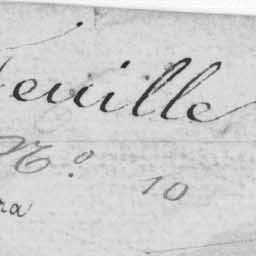 Feuille
No. 10
ra